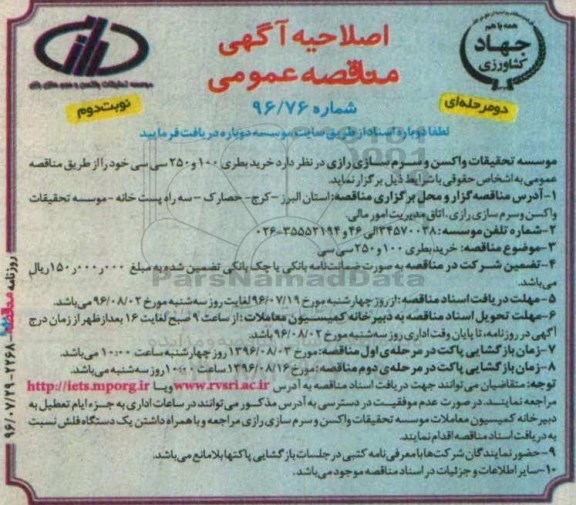 همه با هم
جهاد
کشاورزی
اصلاحیه آگهی
مناقصه عمومی
شماره ۹۶/۷۶
دو مرحله‌ای
نوبت دوم
موسسه تحقیقات واکسن و سرم سازی رازی
لطفا دوباره اسناد از طریق سایت موسسه دوباره دریافت فرمایید
موسسه تحقیقات واکسن و سرم سازی رازی در نظر دارد خرید بطری ۱۰۰ و ۲۵۰ سی سی خود را از طریق مناقصه
عمومی به اشخاص حقوقی با شرایط ذیل برگزار نماید.
۱-آدرس مناقصه‌گزار و محل برگزاری مناقصه: استان البرز -کرج- حصارک - سه راه پست خانه - موسسه تحقیقات
واکسن و سرم سازی رازی، اتاق مدیریت امور مالی.
۲-شماره تلفن موسسه: ۳۴۵۷۰۰۳۸ الی ۴۶ و ۳۵۵۵۲۱۹۴-۰۲۶
۳-موضوع مناقصه: خرید بطری ۱۰۰ و ۲۵۰ سی سی
۴-تضمین شرکت در مناقصه به صورت ضمانت‌نامه بانکی یا چک بانکی تضمین شده به مبلغ ۱۵۰٫۰۰۰٫۰۰۰ ریال
می‌باشد.
۵-مهلت دریافت اسناد مناقصه: از روز چهارشنبه مورخ ۹۶/۰۷/۱۹ لغایت روز سه‌شنبه مورخ ۹۶/۰۸/۰۲ می‌باشد.
۶-مهلت تحویل اسناد مناقصه به دبیرخانه کمیسیون معاملات: از ساعت ۹ صبح لغایت ۱۶ بعدازظهر از زمان درج
آگهی در روزنامه، تا پایان وقت اداری روز سه‌شنبه مورخ ۹۶/۰۸/۰۲ می‌باشد.
۷-زمان بازگشایی پاکت در مرحله‌ی اول مناقصه: مورخ ۱۳۹۶/۰۸/۰۳ روز چهارشنبه ساعت ۱۰:۰۰ می‌باشد.
۸-زمان بازگشایی پاکت در مرحله‌ی دوم مناقصه: مورخ ۱۳۹۶/۰۸/۱۶ ساعت ۱۰:۰۰ روز سه‌شنبه می‌باشد.
توجه: متقاضیان می‌توانند جهت دریافت اسناد مناقصه به آدرس www.rvsri.ac.ir و یا http://iets.mporg.ir
مراجعه نمایند. در صورت عدم موفقیت در دسترسی به آدرس مذکور می‌توانند در ساعات اداری به جزء ایام تعطیل به
دبیرخانه کمیسیون معاملات موسسه تحقیقات واکسن و سرم سازی رازی مراجعه و با همراه داشتن یک دستگاه فلش نسبت
به دریافت اسناد مناقصه اقدام نمایند.
۹-حضور نمایندگان شرکت‌ها با معرفی‌نامه کتبی در جلسات بازگشایی پاکتها بلامانع می‌باشد.
۱۰-سایر اطلاعات و جزئیات در اسناد مناقصه موجود می‌باشد.
روزنامه مناقصه ۲۲۶۸-۹۶/۰۷/۲۹
ParsNamadData